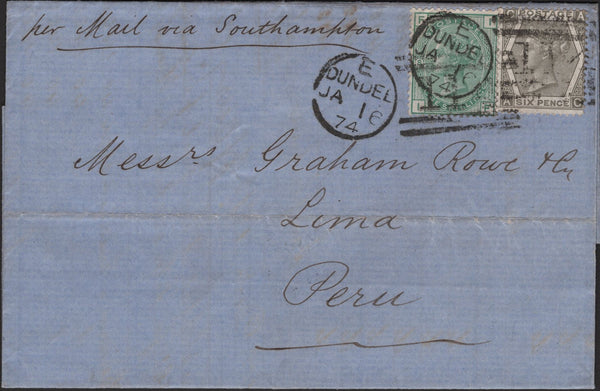 per Mail via Southampton
E
DUNDEE
JA 16
74
E
DUNDEE
JA 16
74
SIX PENCE
A C
Messrs Graham Rowe & Co
Lima
Peru